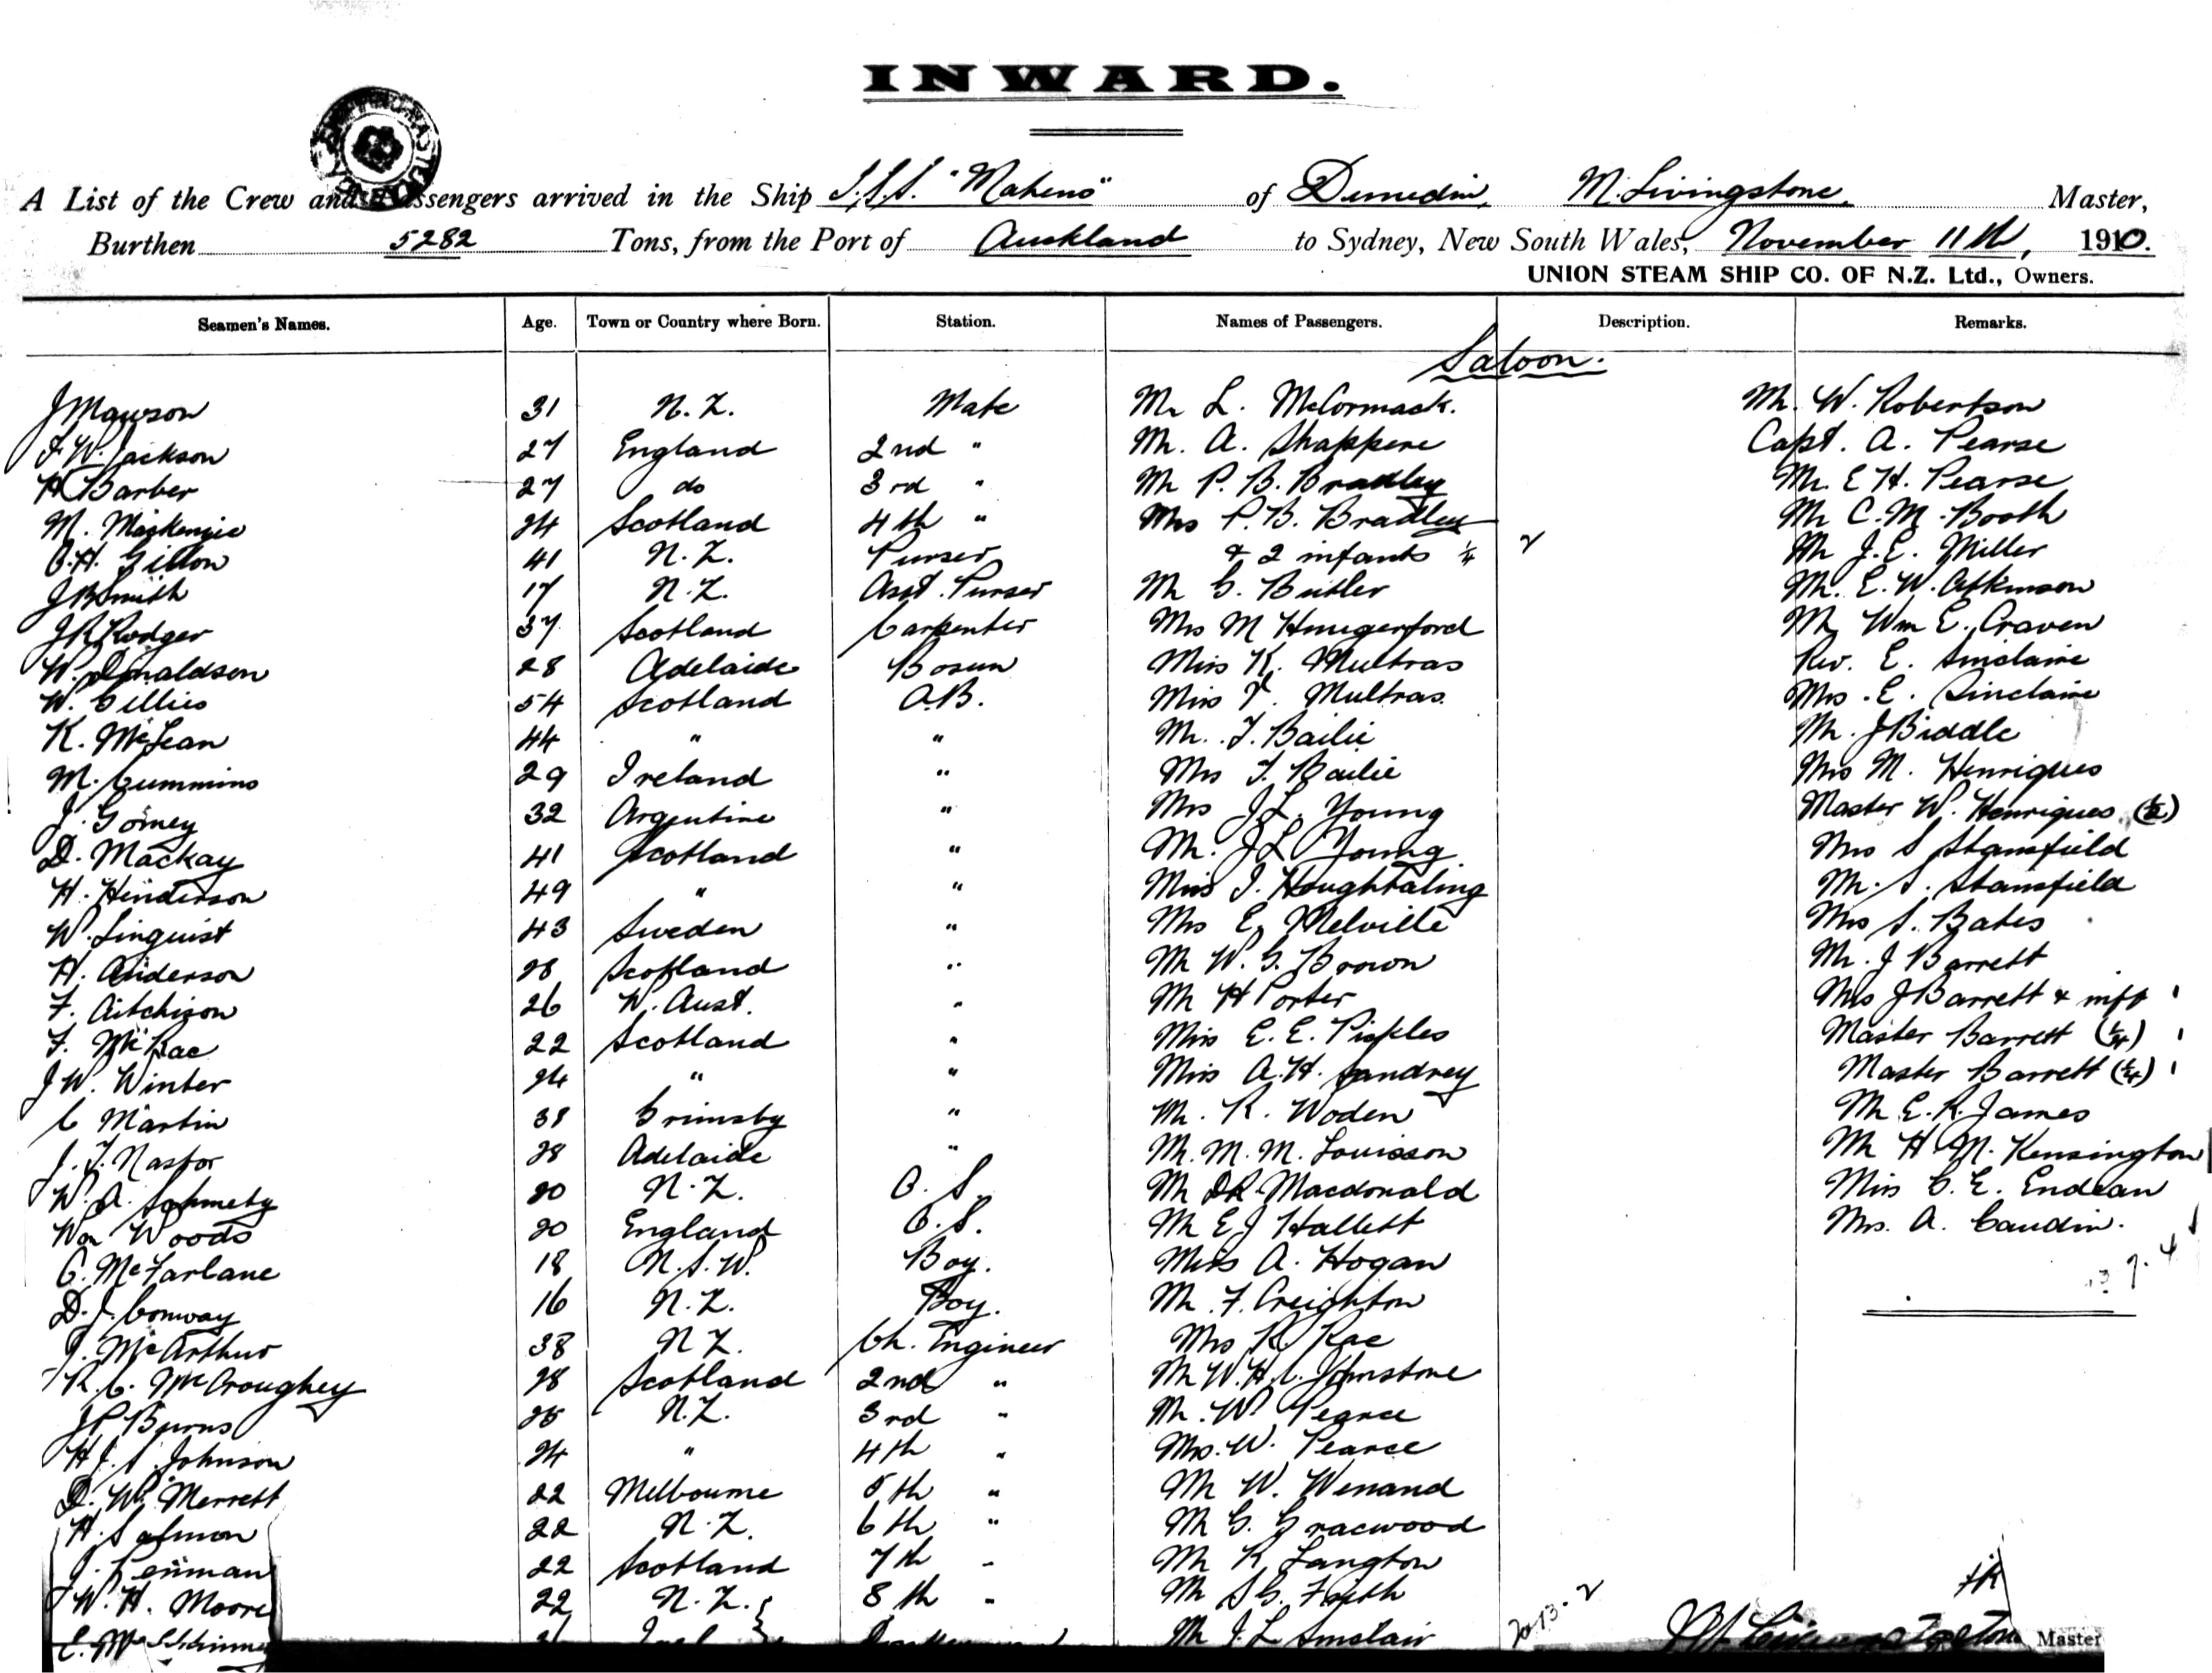 INWARD.
A List of the Crew and Passengers arrived in the Ship S.S.S. "Maheno" of Dunedin, M. Livingstone, Master,
Burthen 5282 Tons, from the Port of Auckland to Sydney, New South Wales, November 11th, 1910.
UNION STEAM SHIP CO. OF N.Z. Ltd., Owners.
Seamen's Names. Age. Town or Country where Born. Station. Names of Passengers. Description. Remarks.
Saloon.
J Mawson 31 N.Z. Mate Mr L. McCormack. Mr. W. Robertson
F. W. Jackson 27 England 2nd " Mr. A. Shappere Capt. A. Pearse
H Barber 27 do 3rd " Mr P. B. Bradley Mr. E H. Pearse
M. Mackenzie 24 Scotland 4th " Mrs P. B. Bradley Mr C. M. Booth
C.H. Gillon 41 N.Z. Purser & 2 infants 1/4 2 Mr J. E. Miller
J B Smith 17 N.Z. Asst. Purser Mr G. Butler Mr. E. W. Atkinson
J R Rodger 37 Scotland Carpenter Mrs M Hungerford Mr Wm E. Craven
W. Donaldson 28 Adelaide Bosun Miss K. Multras Rev. E. Sinclaire
W. Gillies 54 Scotland A.B. Miss V. Multras Mrs. E. Sinclaire
K. McLean 44 " " Mr. T. Bailie Mr. J Biddle
M. Cummins 29 Ireland " Mrs T. Bailie Mrs M. Henriques
J. Gomey 32 Argentine " Mrs J L. Young Master W. Henriques (1/2)
D. Mackay 41 Scotland " Mr. J L Young Mrs S Stansfield
H. Henderson 49 " " Miss I. Houghtaling Mr. S. Stansfield
W. Linquist 43 Sweden " Mrs E. Melville Mrs S. Bates
H. Anderson 28 Scotland " Mr W. G. Brown Mr. J Barrett
F. Aitchison 26 W. Aust. " Mr H Porter Mrs J Barrett & inft
F. McRae 22 Scotland " Miss E. E. Pickles Master Barrett (1/4)
J W. Winter 24 " " Miss A.H. Landrey Master Barrett (1/4)
C Martin 38 Grimsby " Mr. R. Woden Mr E. R. James
J. T. Nastor 28 Adelaide " Mr. M. M. Louisson Mr H. M. Kensington
W. A. 20 N.Z. O. S. Mr D R Macdonald Miss C. E. Endean
Wm Woods 20 England O. S. Mr E J Hallett Mrs. A. Caudin.
C. McFarlane 18 N.S.W. Boy. Miss A. Hogan
D. J. Conway 16 N.Z. Boy. Mr F. Creighton
J. McArthur 38 N Z. Ch. Engineer Mrs R. Rae
R. C. McCroughey 28 Scotland 2nd " Mr W. H. C. Johnstone
J P Burns 25 N.Z. 3rd " Mr. W Pearce
H J. S. Johnson 24 " 4th " Mrs. W. Pearce
D. W. Merrett 22 Melbourne 5th " Mr W. Wenand
H. Salmon 22 N.Z. 6th " Mr G. Gracwood
J. Penman 22 Scotland 7th " Mr R Langton
W. H. Moore 22 N.Z. 8th " Mr S G. Frith
E. McSkinney 21 Mr J. L Sinclair
Master